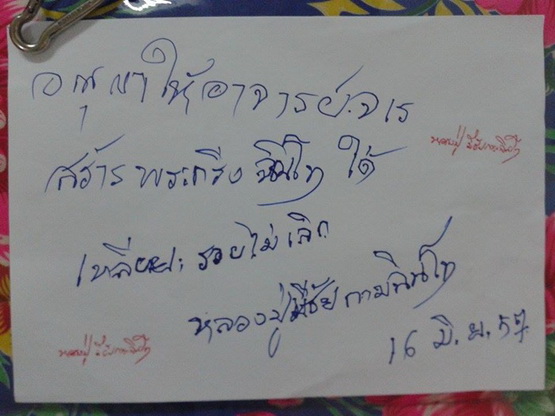 อนุญาให้อาจารย์จเร
สร้าง พระกริ่ง ได้
เหลี่ยม รวยไม่เลิก
หลวงปู่มีชัย กามฉินโท
16 มิ.ย. 57
หลวงปู่ มีชัยกามฉินโท
หลวงปู่ มีชัยกามฉินโท